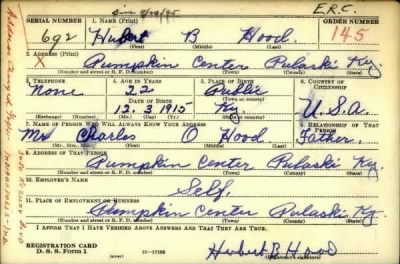 E.R.C.
SERIAL NUMBER 1. NAME (Print) ORDER NUMBER
692 Hubert B Hood. 145
(First) (Middle) (Last)
2. ADDRESS (Print)
X Pumpkin Center Pulaski Ky.
(Number and street or R. F. D. number) (Town) (County) (State)
3. TELEPHONE 4. AGE IN YEARS 5. PLACE OF BIRTH 6. COUNTRY OF CITIZENSHIP
None 22 Public
DATE OF BIRTH (Town or county)
12. 3. 1915 Ky. U.S.A.
(Exchange) (Number) (Mo.) (Day) (Yr.) (State or country)
7. NAME OF PERSON WHO WILL ALWAYS KNOW YOUR ADDRESS 8. RELATIONSHIP OF THAT PERSON
Mr Charles O Hood Father.
(Mr., Mrs., Miss) (First) (Middle) (Last)
9. ADDRESS OF THAT PERSON
Pumpkin Center Pulaski Ky.
(Number and street or R. F. D. number) (Town) (County) (State)
10. EMPLOYER'S NAME
Self.
11. PLACE OF EMPLOYMENT OR BUSINESS
Pumpkin Center Pulaski Ky.
(Number and street or R. F. D. number) (Town) (County) (State)
I AFFIRM THAT I HAVE VERIFIED ABOVE ANSWERS AND THAT THEY ARE TRUE.
REGISTRATION CARD
D. S. S. Form 1 16-17105 Hubert B Hood
(Registrant's signature)